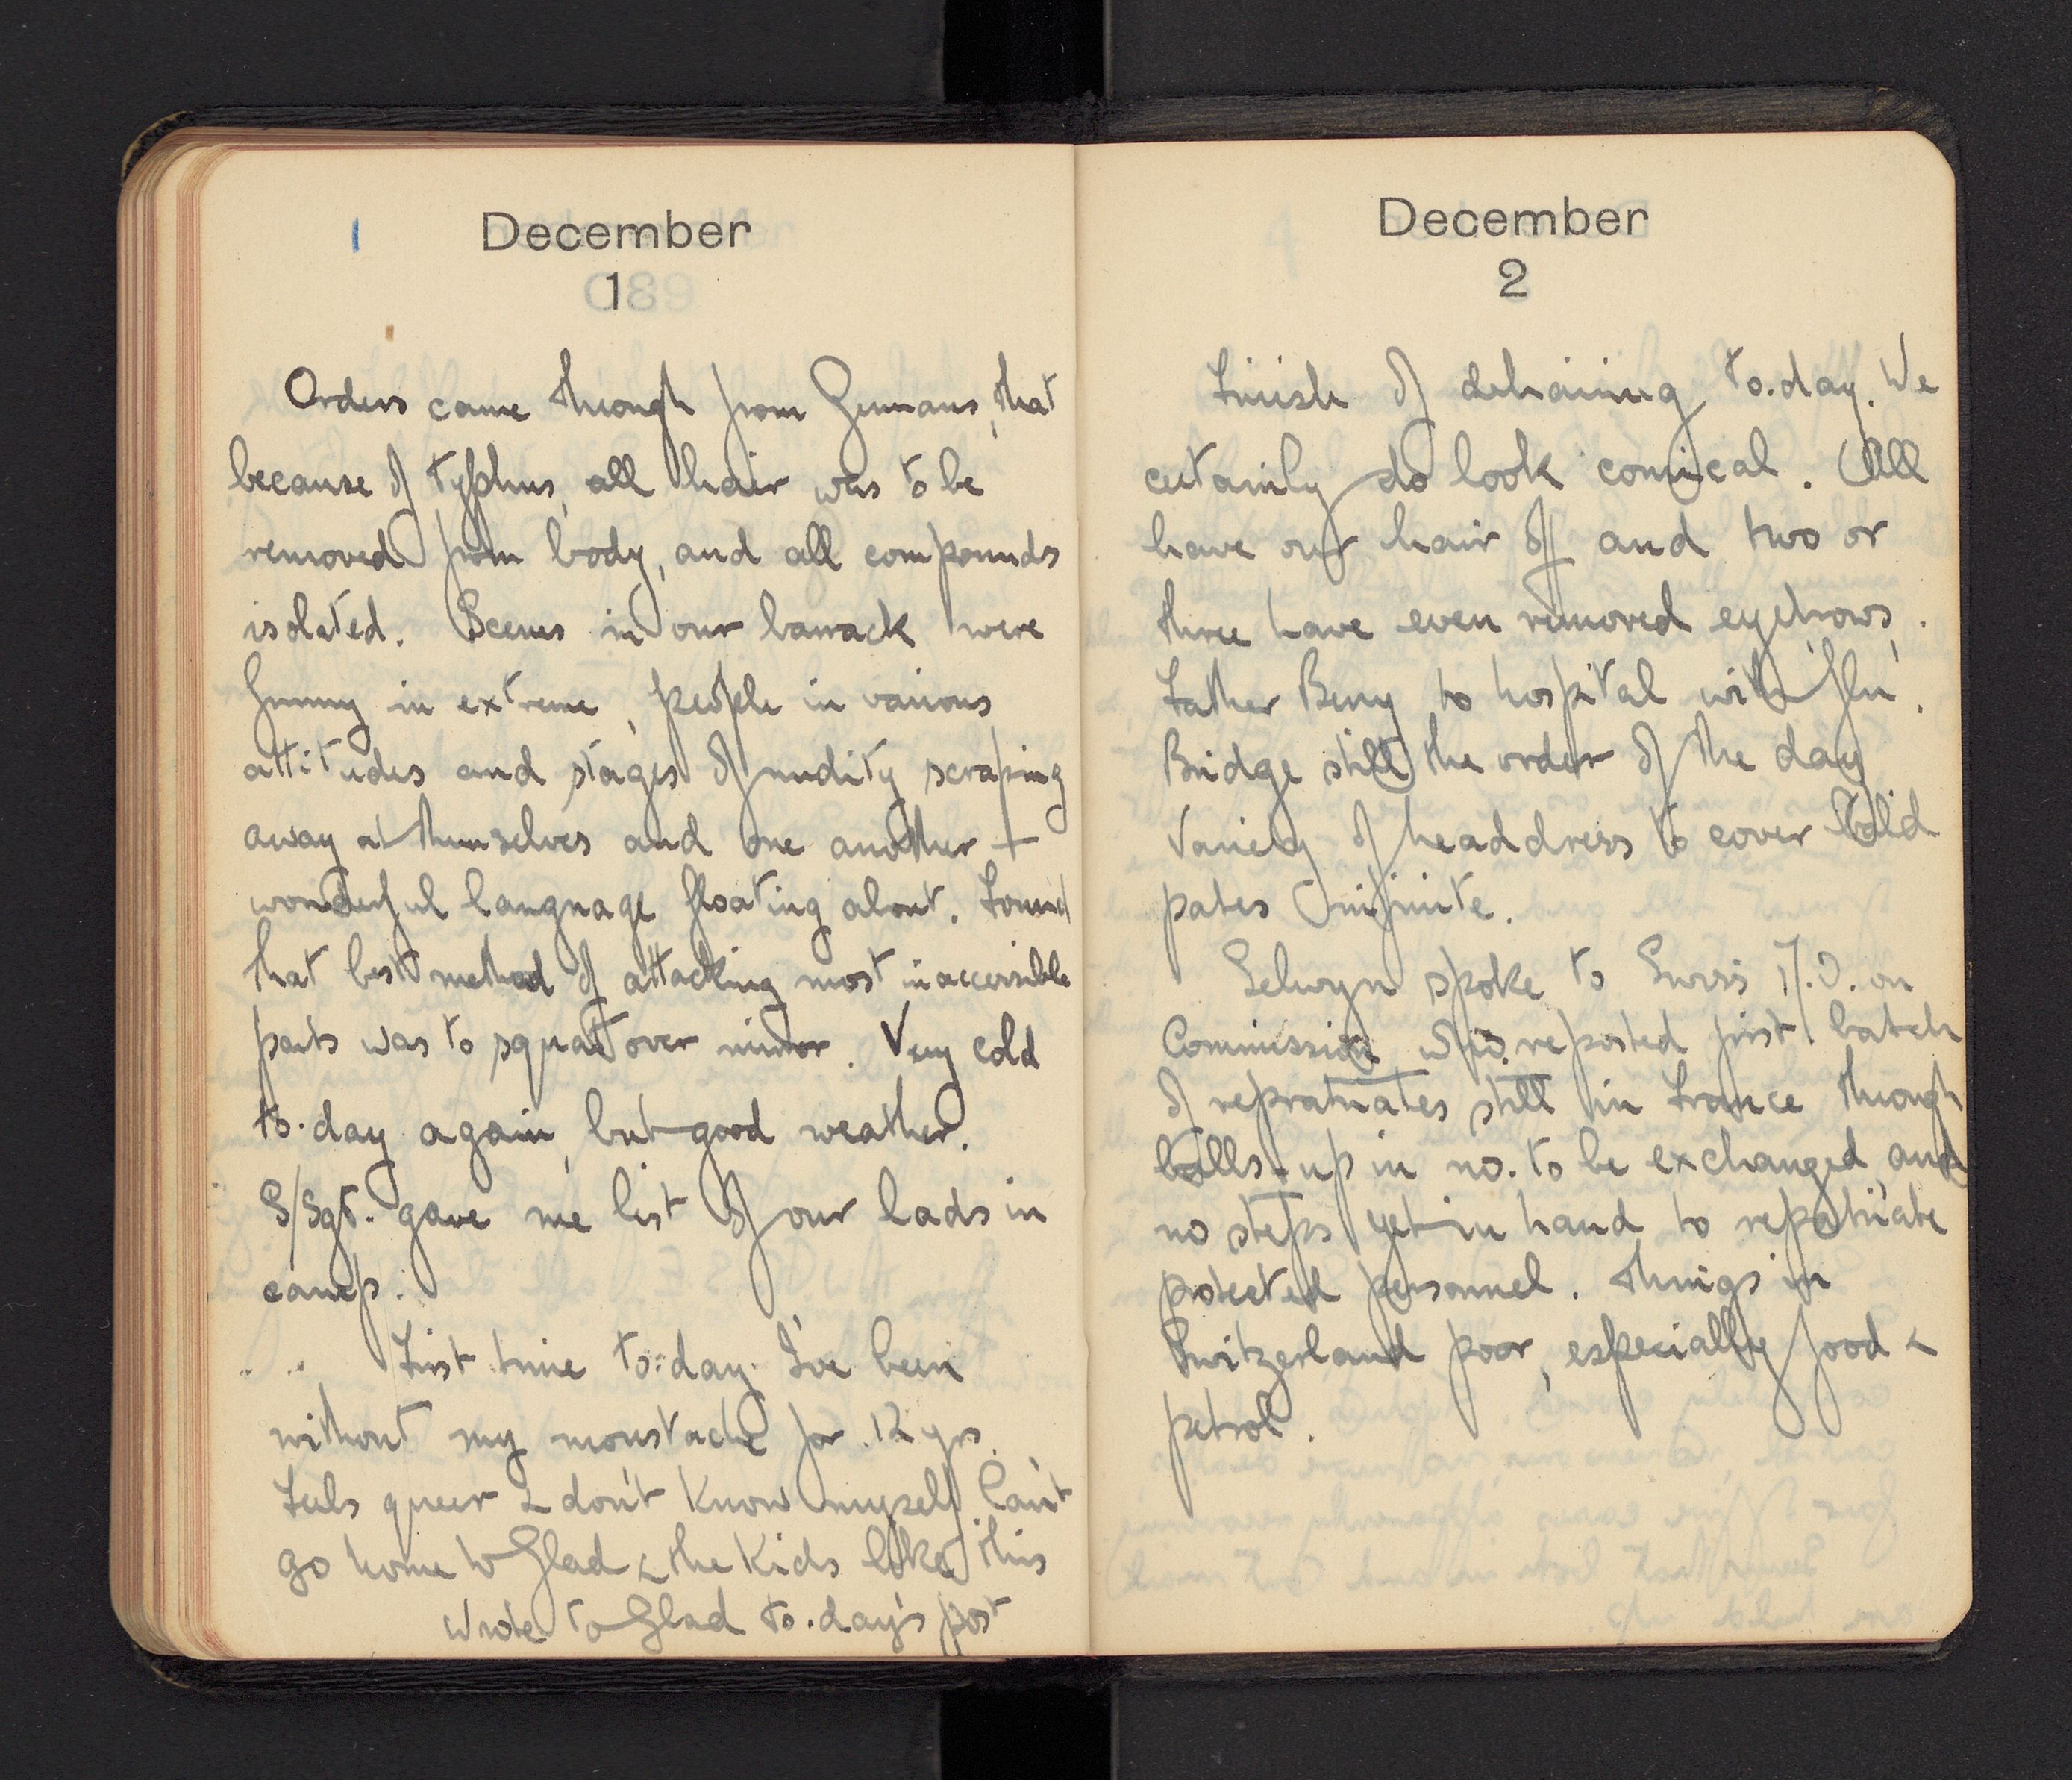 1
December
1
Orders came through from Germans, that
because of typhus, all hair was to be
removed from body, and all compounds
isolated. Scenes in our barrack were
funny in extreme, people in various
attitudes and stages of nudity scraping
away at themselves and one another +
wonderful language floating about. Found
that best method of attacking most inaccessible
parts was to squat over mirror. Very cold
to-day again, but good weather.
S/Sgt. gave me list of our lads in
camp.
First time to-day I've been
without my moustache for 12 yrs.
Feels queer & don't know myself. Can't
go home to Glad & the kids like this
Wrote to Glad to-day's post
December
2
Finish of dehairing to-day. We
certainly do look comical. All
have our hair off and two or
three have even removed eyebrows.
Father Berry to hospital with 'flu'.
Bridge still the order of the day
Variety of headdress to cover bald
pates infinite.
Selwyn spoke to Swiss M.O. on
Commission who reported first batch
of repratriates still in France through
balls-up in no. to be exchanged, and
no steps yet in hand to repatriate
protected personnel. Things in
Switzerland poor, especially food &
petrol.